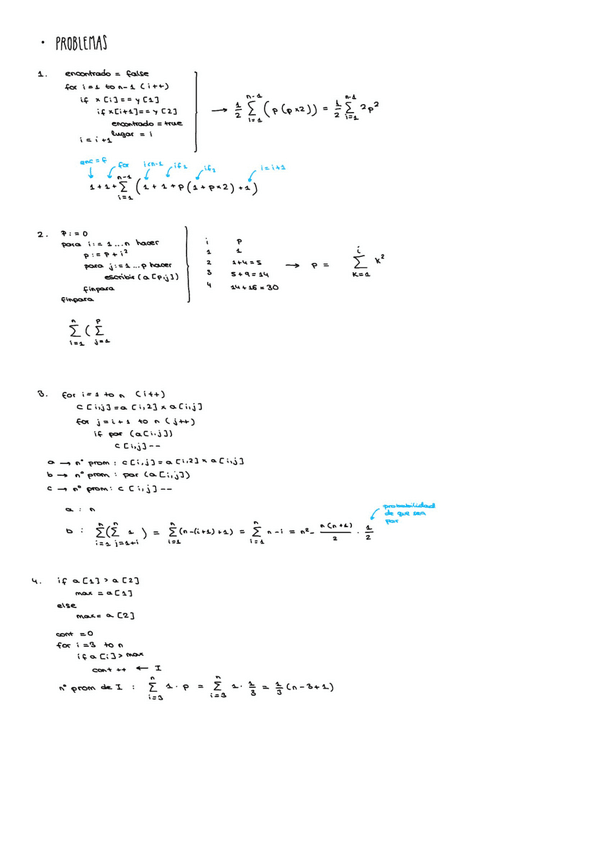 • PROBLEMAS
1. encontrado = false
for i=1 to n-1 (i++)
if x[i]==y[1]
if x[i+1]==y[2]
encontrado = true
lugar = i
i = i+1
→ 1/2 ∑_{i=1}^{n-1} (p(p×2)) = 1/2 ∑_{i=1}^{n-1} 2p²
enc=f for i<n-1 if₁ if₂ i=i+1
1+1+∑_{i=1}^{n-1} (1+1+p(1+p×2)+1)
2. P:=0
para i:=1...n hacer
p:=P+i²
para j:=1...p hacer
escribir(a[p,j])
finpara
finpara
i p
1 1
2 1+4=5
3 5+9=14
4 14+16=30
→ P = ∑_{k=1}^{i} k²
∑_{i=1}^{n} (∑_{j=1}^{p}
3. for i=1 to n (i++)
c[i,j]=a[i,2]×a[i,j]
for j=i+1 to n (j++)
if par (a[i,j])
c[i,j]--
a → nº prom : c[i,j]=a[i,2]×a[i,j]
b → nº prom : par (a[i,j])
c → nº prom : c[i,j]--
a : n
probabilidad
de que sea
par
b : ∑_{i=1}^{n} (∑_{j=1+i}^{n} 1) = ∑_{i=1}^{n} (n-(i+1)+1) = ∑_{i=1}^{n} n-i = n² - n(n+1)/2 · 1/2
4. if a[1]>a[2]
max = a[1]
else
max = a[2]
cont = 0
for i=3 to n
if a[i]>max
cont++ ← I
nº prom de I : ∑_{i=3}^{n} 1·p = ∑_{i=3}^{n} 1·1/3 = 1/3 (n-3+1)